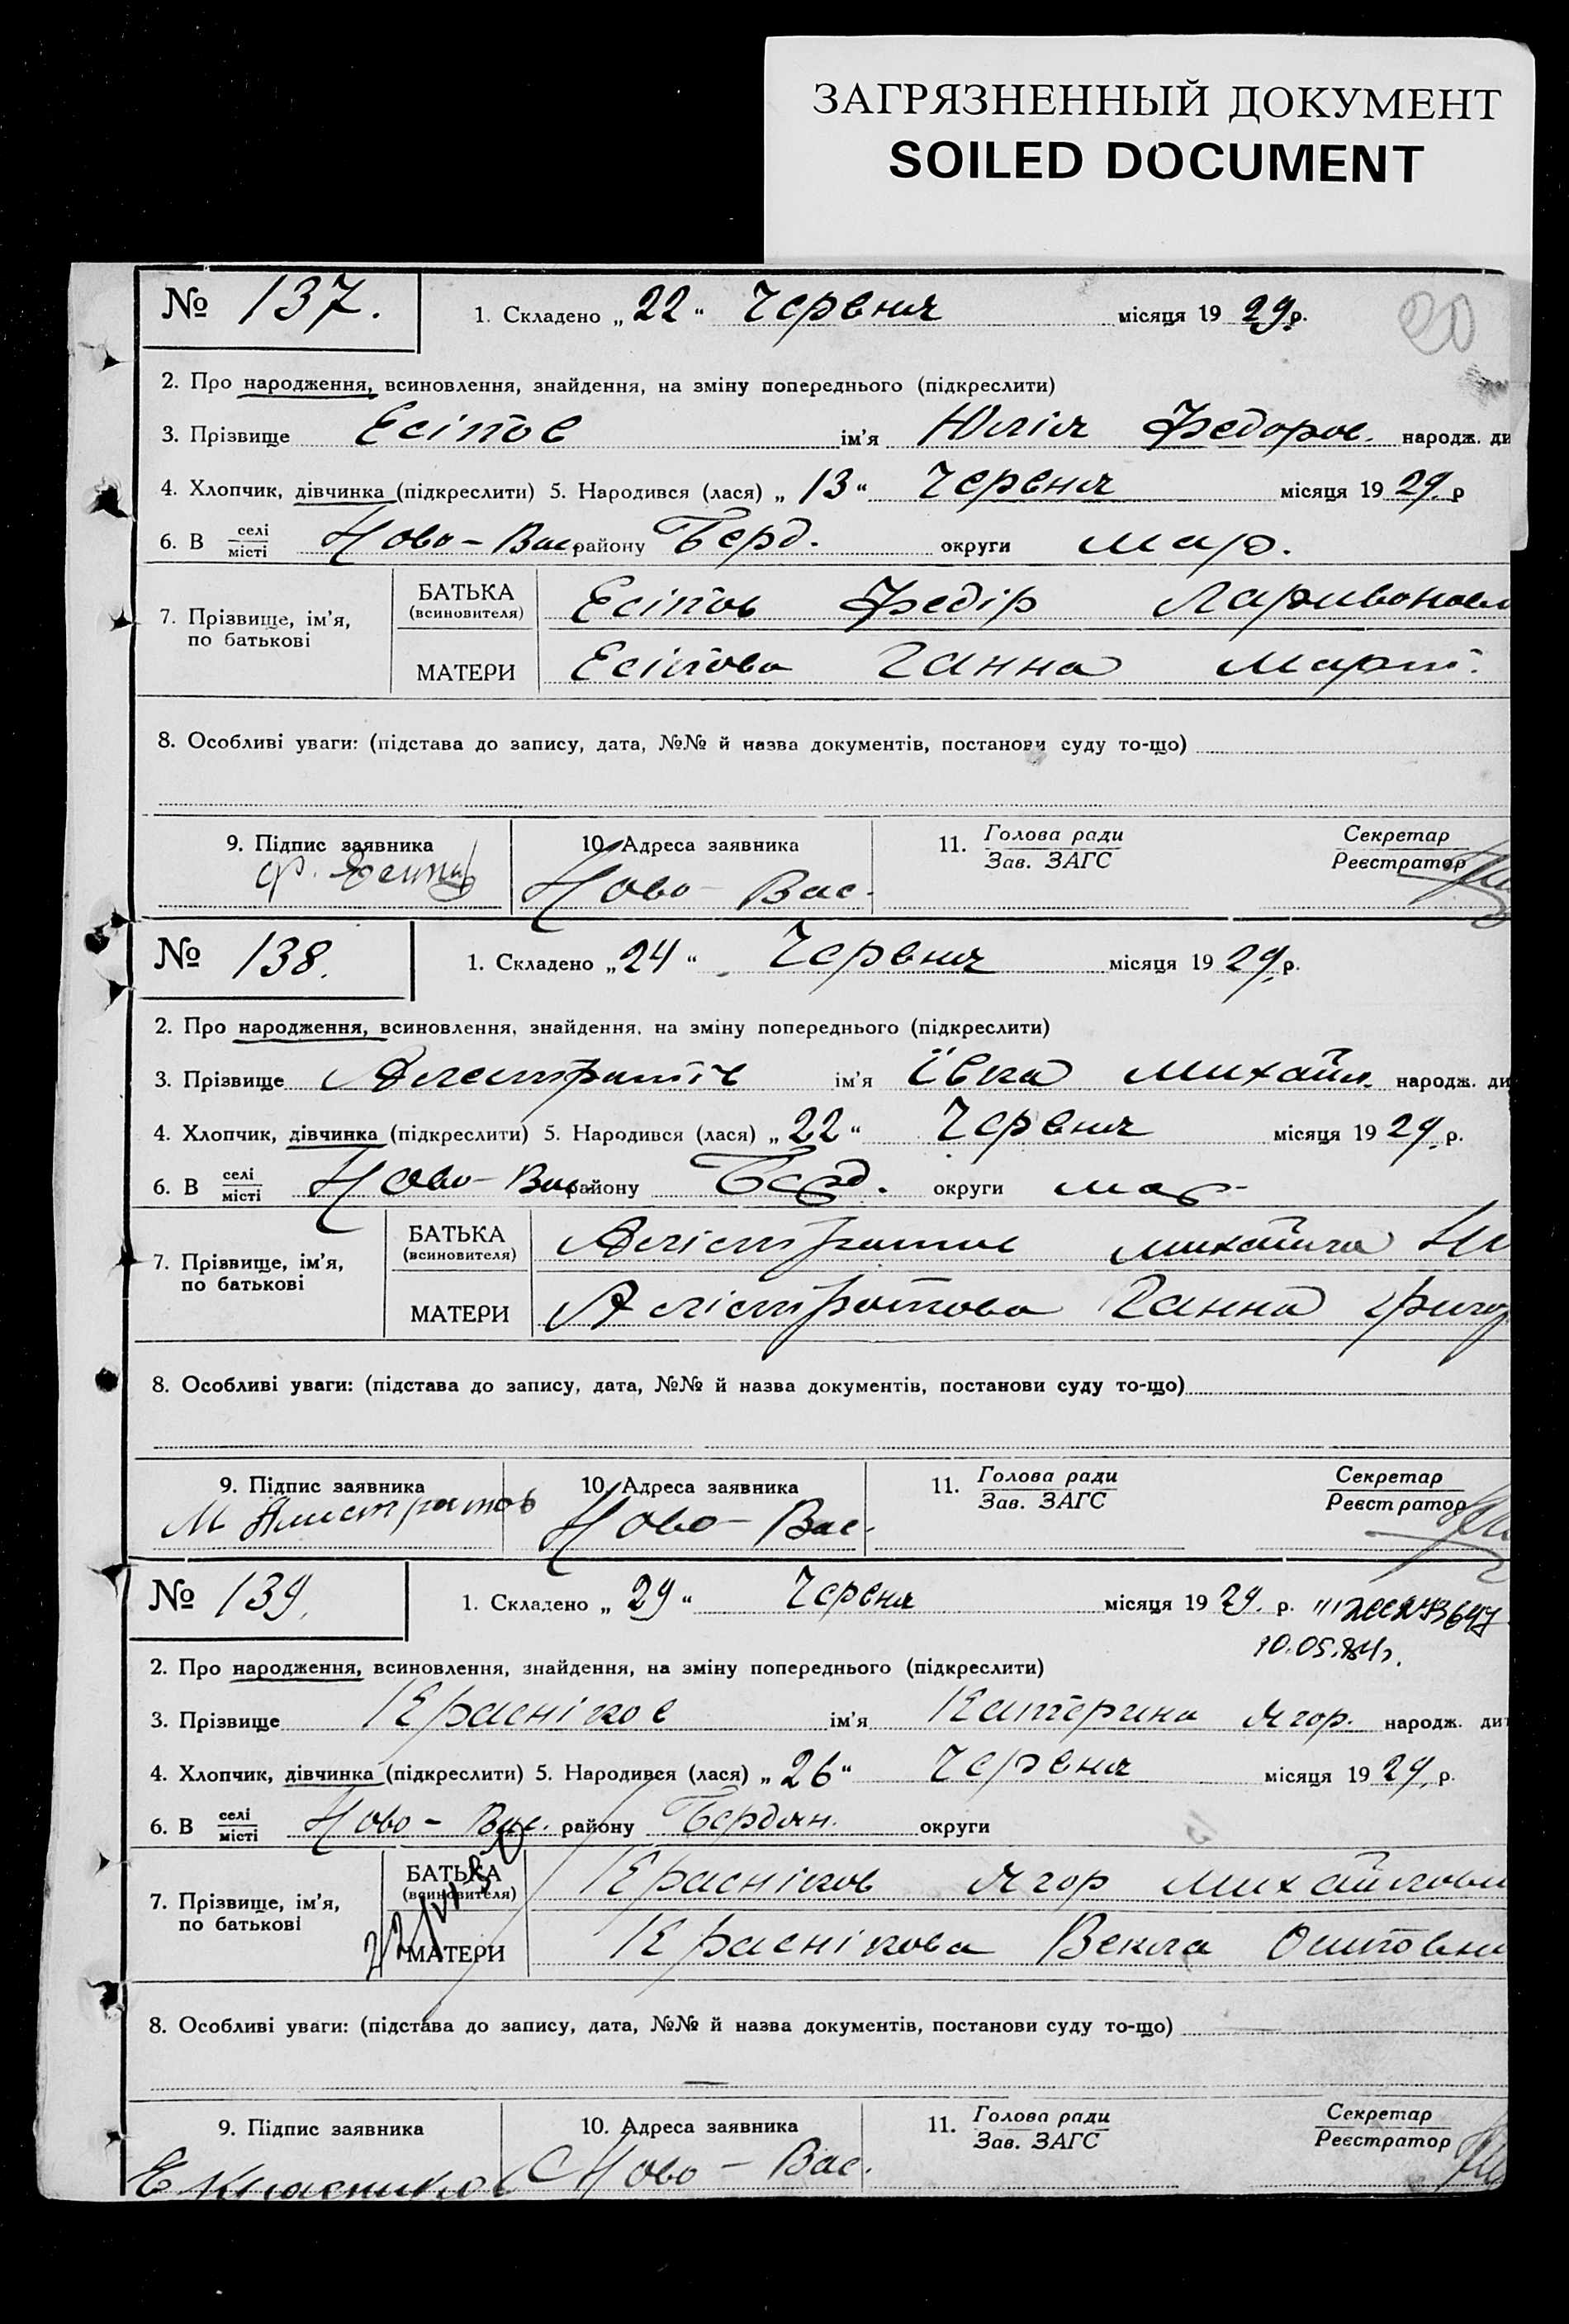 ЗАГРЯЗНЕННЫЙ ДОКУМЕНТ
SOILED DOCUMENT
№ 137. 1. Складено „22“ Червня місяця 1929 р. 20
2. Про народження, всиновлення, знайдення, на зміну попереднього (підкреслити)
3. Прізвище Есіпов ім'я Юлія Федоров. народж. ди
4. Хлопчик, дівчинка (підкреслити) 5. Народився (лася) „13“ Червня місяця 1929. р
6. В селі місті Ново-Вас. району Берд. округи Мар.
7. Прізвище, ім'я, по батькові
БАТЬКА (всиновителя) Есіпов Федір Ларивонов
МАТЕРИ Есіпова Ганна Март.
8. Особливі уваги: (підстава до запису, дата, №№ й назва документів, постанови суду то-що)
9. Підпис заявника 10. Адреса заявника 11. Голова ради Зав. ЗАГС Секретар Реєстратор
Ф. Ново-Вас.
№ 138. 1. Складено „24“ Червня місяця 1929. р.
2. Про народження, всиновлення, знайдення, на зміну попереднього (підкреслити)
3. Прізвище Алестратів ім'я Євга Михайл. народж. ди
4. Хлопчик, дівчинка (підкреслити) 5. Народився (лася) „22“ Червня місяця 1929. р.
6. В селі місті Ново-Вас. району Берд. округи Мар.
7. Прізвище, ім'я, по батькові
БАТЬКА (всиновителя) Алістратов Михайло
МАТЕРИ Алістратова Ганна Григор
8. Особливі уваги: (підстава до запису, дата, №№ й назва документів, постанови суду то-що)
9. Підпис заявника 10. Адреса заявника 11. Голова ради Зав. ЗАГС Секретар Реєстратор
М Алистратов Ново-Вас.
№ 139. 1. Складено „29“ Червня місяця 1929. р.
10.05.84г.
2. Про народження, всиновлення, знайдення, на зміну попереднього (підкреслити)
3. Прізвище Красніков ім'я Катерина Ягор. народж. дит
4. Хлопчик, дівчинка (підкреслити) 5. Народився (лася) „26“ Червня місяця 1929. р.
6. В селі місті Ново-Вас. району Бердян. округи
7. Прізвище, ім'я, по батькові
БАТЬКА (всиновителя) Красніков Ягор Михайлови
МАТЕРИ Краснікова Векла Осиповн
8. Особливі уваги: (підстава до запису, дата, №№ й назва документів, постанови суду то-що)
9. Підпис заявника 10. Адреса заявника 11. Голова ради Зав. ЗАГС Секретар Реєстратор
Е Красников Ново-Вас.